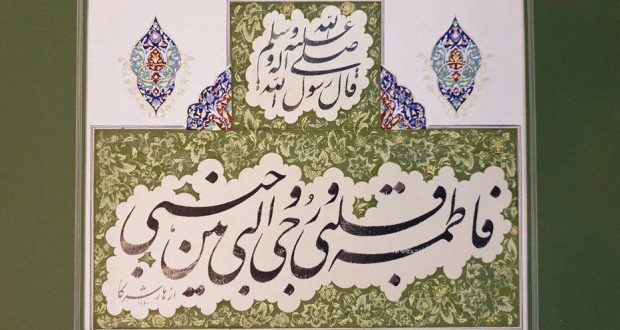 قال رسول الله
صلی الله علیه و آله و سلم
فاطمه قلبی و رُوحی التی بین جنبی